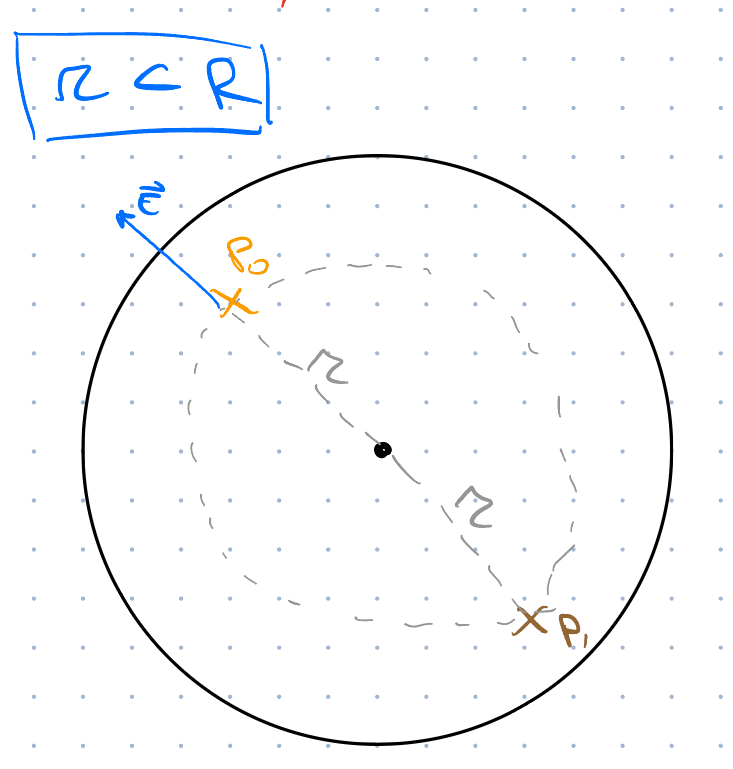 r < R
E⃗
P₀
r
r
P₁